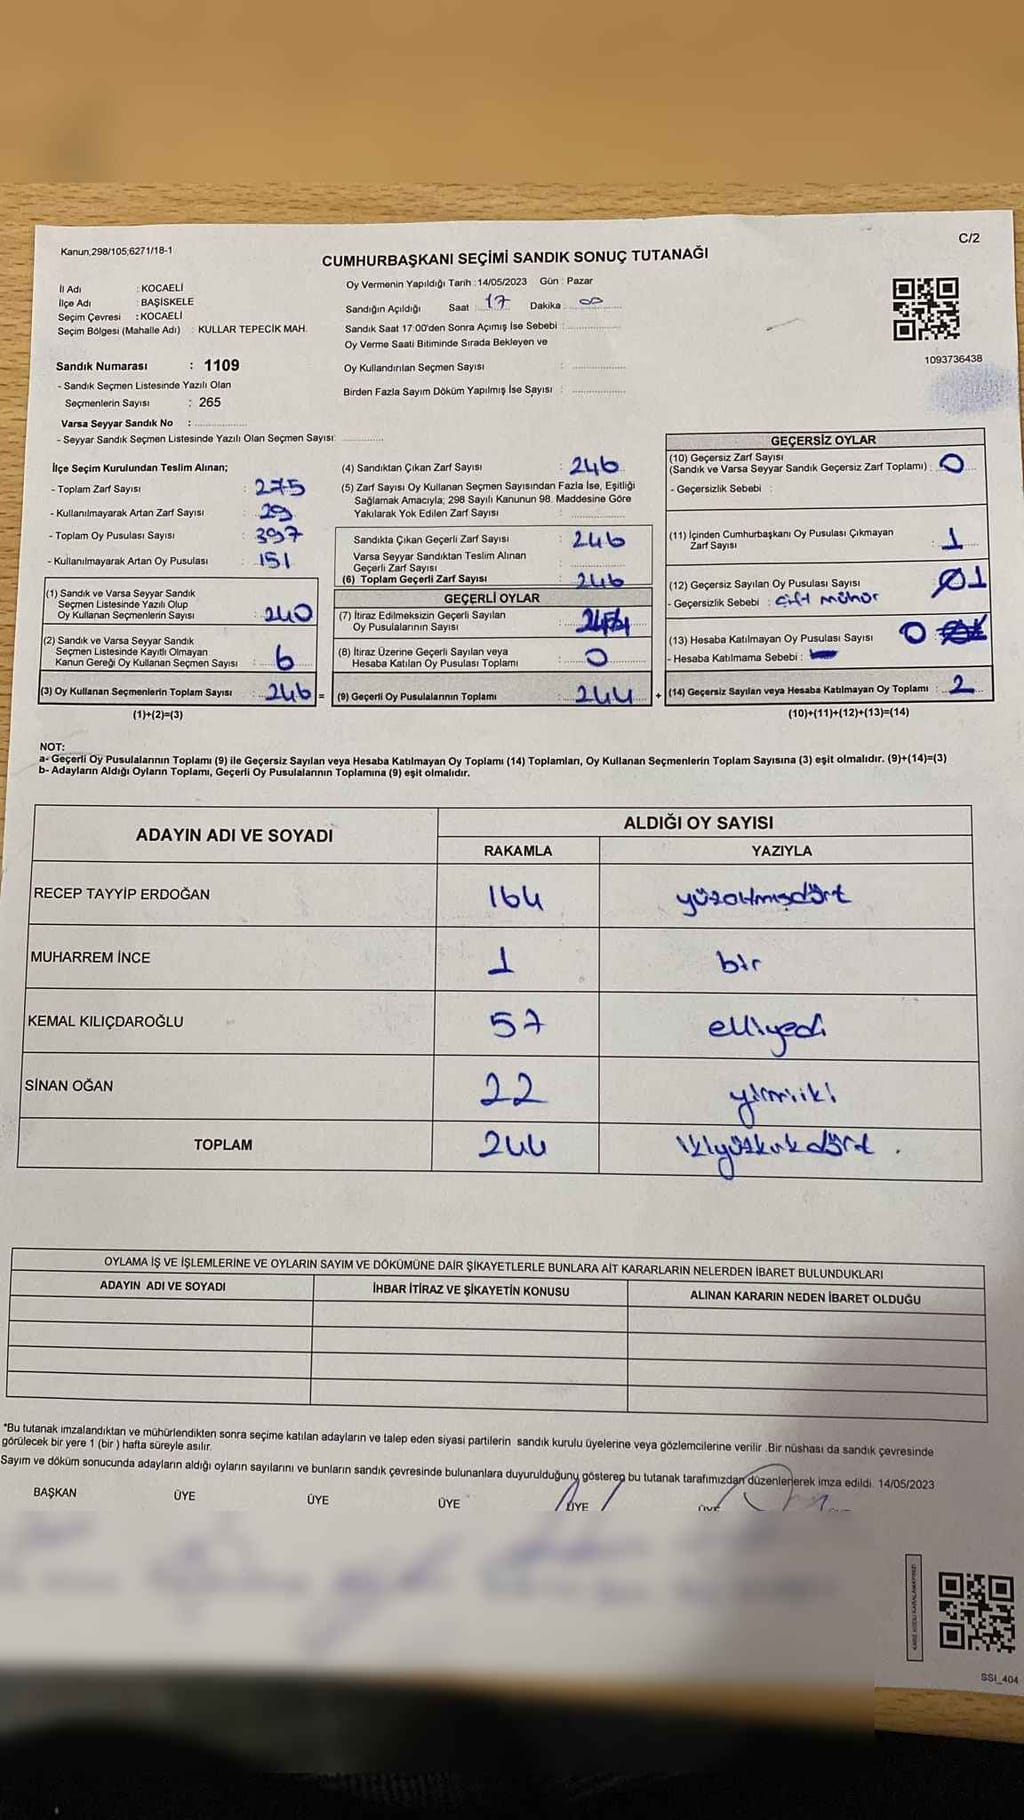 Kanun,298/105,6271/18-1
C/2
CUMHURBAŞKANI SEÇİMİ SANDIK SONUÇ TUTANAĞI
İl Adı : KOCAELİ
İlçe Adı : BAŞİSKELE
Seçim Çevresi : KOCAELİ
Seçim Bölgesi (Mahalle Adı) : KULLAR TEPECİK MAH.
Oy Vermenin Yapıldığı Tarih :14/05/2023 Gün : Pazar
Sandığın Açıldığı Saat 17 Dakika 00
Sandık Saat 17:00'den Sonra Açımış İse Sebebi :
Oy Verme Saati Bitiminde Sırada Bekleyen ve
Oy Kullandırılan Seçmen Sayısı :
Birden Fazla Sayım Döküm Yapılmış İse Sayısı :
1093736438
Sandık Numarası : 1109
- Sandık Seçmen Listesinde Yazılı Olan
Seçmenlerin Sayısı : 265
Varsa Seyyar Sandık No :
- Seyyar Sandık Seçmen Listesinde Yazılı Olan Seçmen Sayısı:
İlçe Seçim Kurulundan Teslim Alınan;
- Toplam Zarf Sayısı : 275
- Kullanılmayarak Artan Zarf Sayısı : 29
- Toplam Oy Pusulası Sayısı : 397
- Kullanılmayarak Artan Oy Pusulası : 151
(1) Sandık ve Varsa Seyyar Sandık
Seçmen Listesinde Yazılı Olup
Oy Kullanan Seçmenlerin Sayısı : 240
(2) Sandık ve Varsa Seyyar Sandık
Seçmen Listesinde Kayıtlı Olmayan
Kanun Gereği Oy Kullanan Seçmen Sayısı : 6
(3) Oy Kullanan Seçmenlerin Toplam Sayısı : 246 =
(1)+(2)=(3)
(4) Sandıktan Çıkan Zarf Sayısı : 246
(5) Zarf Sayısı Oy Kullanan Seçmen Sayısından Fazla İse, Eşitliği
Sağlamak Amacıyla; 298 Sayılı Kanunun 98. Maddesine Göre
Yakılarak Yok Edilen Zarf Sayısı :
Sandıkta Çıkan Geçerli Zarf Sayısı : 246
Varsa Seyyar Sandıktan Teslim Alınan
Geçerli Zarf Sayısı :
(6) Toplam Geçerli Zarf Sayısı : 246
GEÇERLİ OYLAR
(7) İtiraz Edilmeksizin Geçerli Sayılan
Oy Pusulalarının Sayısı :
(8) İtiraz Üzerine Geçerli Sayılan veya
Hesaba Katılan Oy Pusulası Toplamı : 0
(9) Geçerli Oy Pusulalarının Toplamı : 244 +
GEÇERSİZ OYLAR
(10) Geçersiz Zarf Sayısı
(Sandık ve Varsa Seyyar Sandık Geçersiz Zarf Toplamı) : 0
- Geçersizlik Sebebi :
(11) İçinden Cumhurbaşkanı Oy Pusulası Çıkmayan
Zarf Sayısı : 1
(12) Geçersiz Sayılan Oy Pusulası Sayısı : 1
- Geçersizlik Sebebi : Çift mühür
(13) Hesaba Katılmayan Oy Pusulası Sayısı : 0
- Hesaba Katılmama Sebebi :
(14) Geçersiz Sayılan veya Hesaba Katılmayan Oy Toplamı : 2
(10)+(11)+(12)+(13)=(14)
NOT:
a- Geçerli Oy Pusulalarının Toplamı (9) ile Geçersiz Sayılan veya Hesaba Katılmayan Oy Toplamı (14) Toplamları, Oy Kullanan Seçmenlerin Toplam Sayısına (3) eşit olmalıdır. (9)+(14)=(3)
b- Adayların Aldığı Oyların Toplamı, Geçerli Oy Pusulalarının Toplamına (9) eşit olmalıdır.
ADAYIN ADI VE SOYADI
ALDIĞI OY SAYISI
RAKAMLA YAZIYLA
RECEP TAYYİP ERDOĞAN 164 yüzaltmışdört
MUHARREM İNCE 1 bir
KEMAL KILIÇDAROĞLU 57 elliyedi
SİNAN OĞAN 22 yirmiiki
TOPLAM 244 ikiyüzkırkdört
OYLAMA İŞ VE İŞLEMLERİNE VE OYLARIN SAYIM VE DÖKÜMÜNE DAİR ŞİKAYETLERLE BUNLARA AİT KARARLARIN NELERDEN İBARET BULUNDUKLARI
ADAYIN ADI VE SOYADI İHBAR İTİRAZ VE ŞİKAYETİN KONUSU ALINAN KARARIN NEDEN İBARET OLDUĞU
*Bu tutanak imzalandıktan ve mühürlendikten sonra seçime katılan adayların ve talep eden siyasi partilerin sandık kurulu üyelerine veya gözlemcilerine verilir .Bir nüshası da sandık çevresinde
görülecek bir yere 1 (bir ) hafta süreyle asılır.
Sayım ve döküm sonucunda adayların aldığı oyların sayılarını ve bunların sandık çevresinde bulunanlara duyurulduğunu gösteren bu tutanak tarafımızdan düzenlenerek imza edildi. 14/05/2023
BAŞKAN ÜYE ÜYE ÜYE ÜYE ÜYE
SSI_404